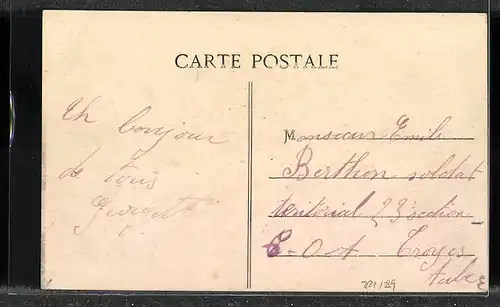 CARTE POSTALE
Un bonjour
de tous
Monsieur Emile
Berthon soldat
territorial 23 section
C-O A Troyes
Aube
221/89